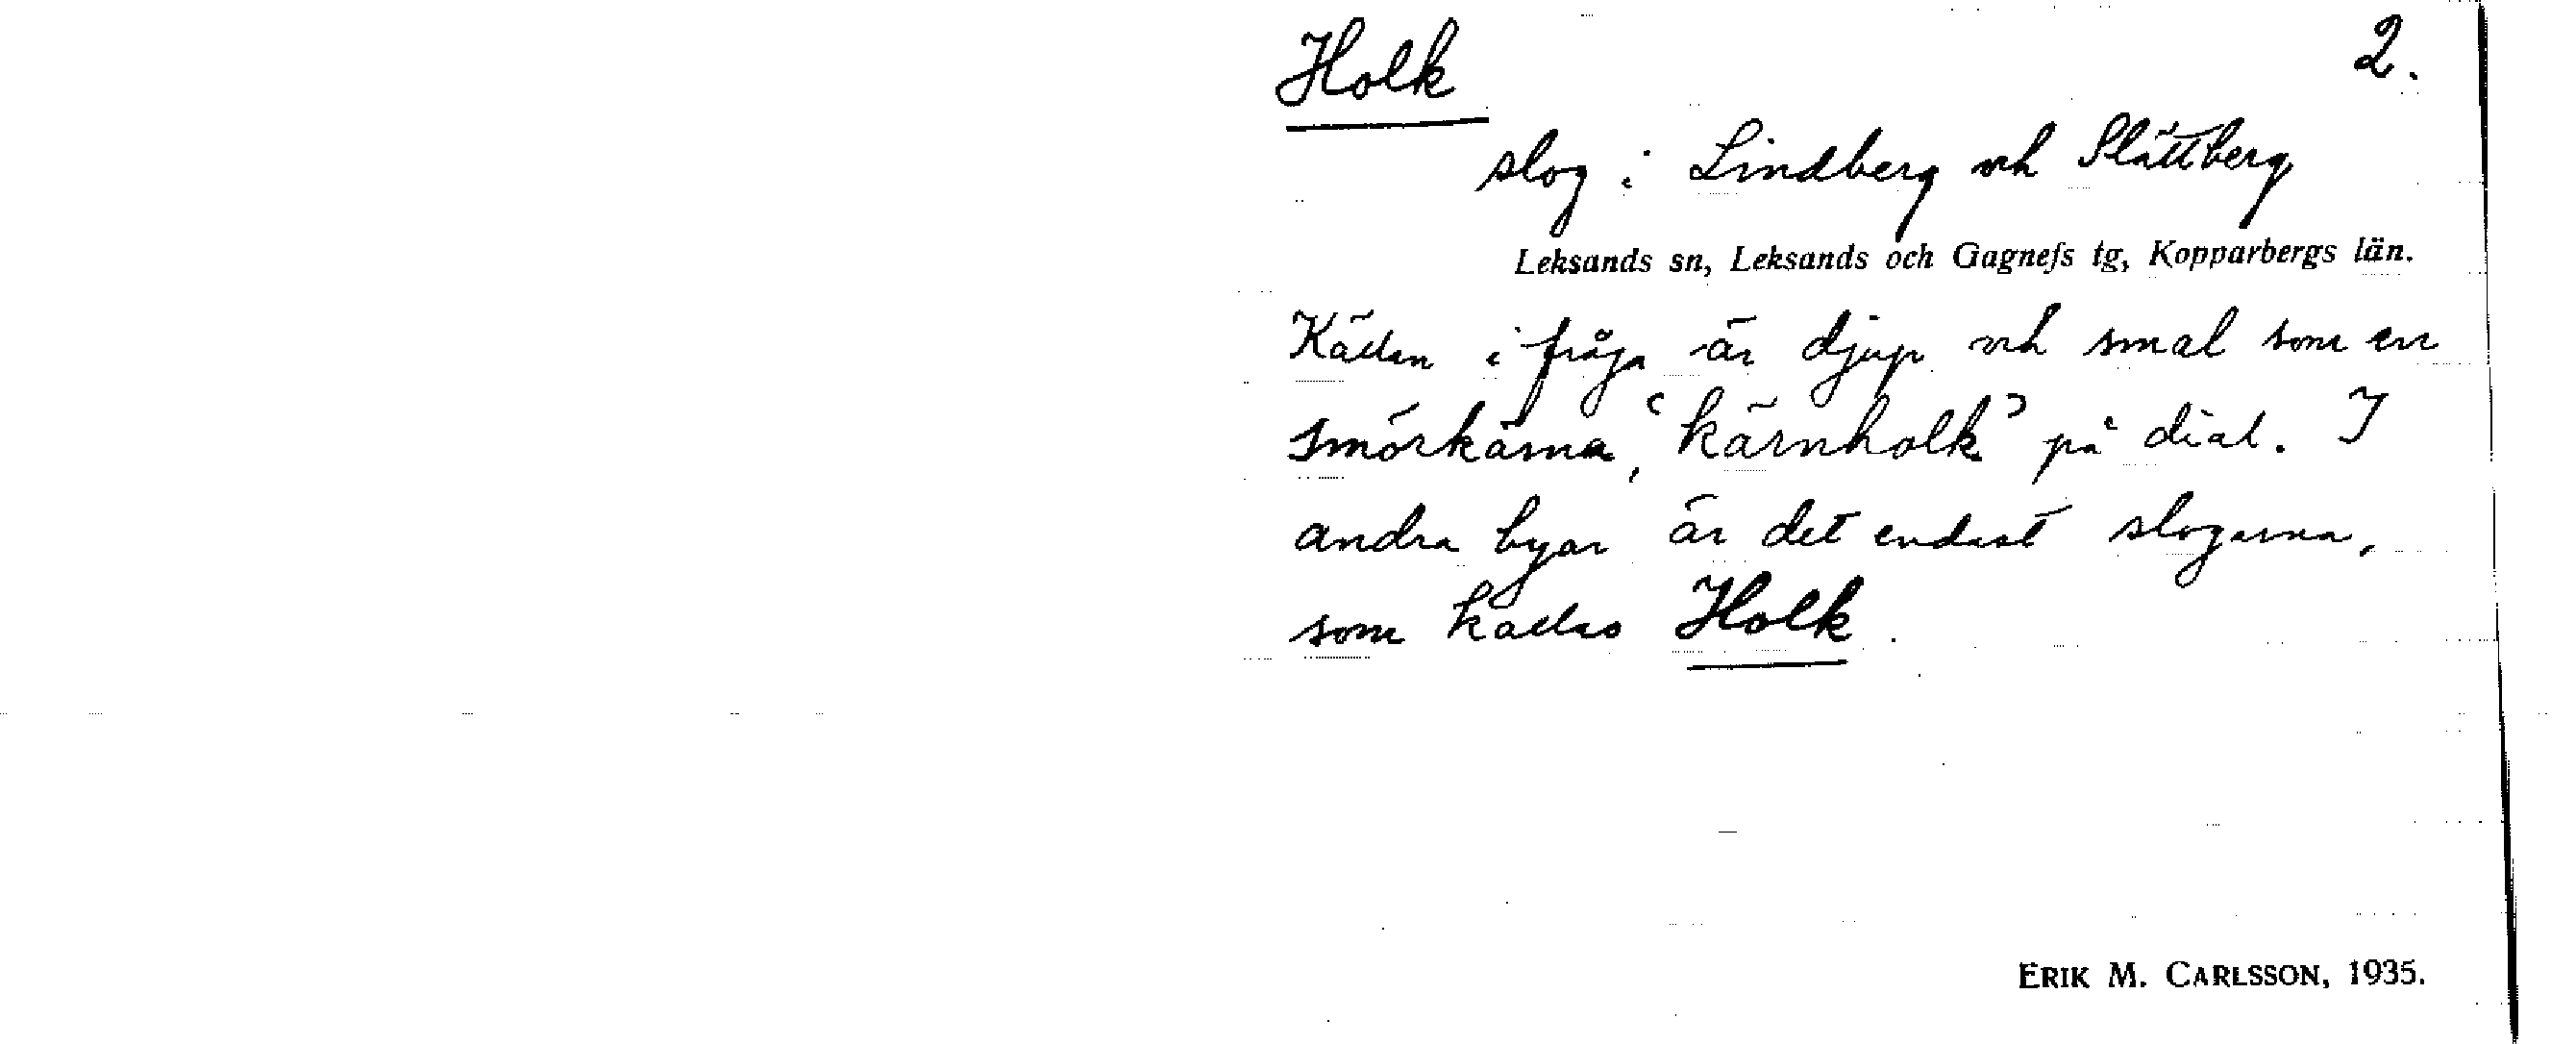 Holk 2.
slog i Lindberg och Slättberg
Leksands sn, Leksands och Gagnefs tg, Kopparbergs län.
Källan i fråga är djup och smal som en
smörkärna, 'kärnholk' på dial. I
andra byar är det endast slogarna,
som kallas Holk.
ERIK M. CARLSSON, 1935.